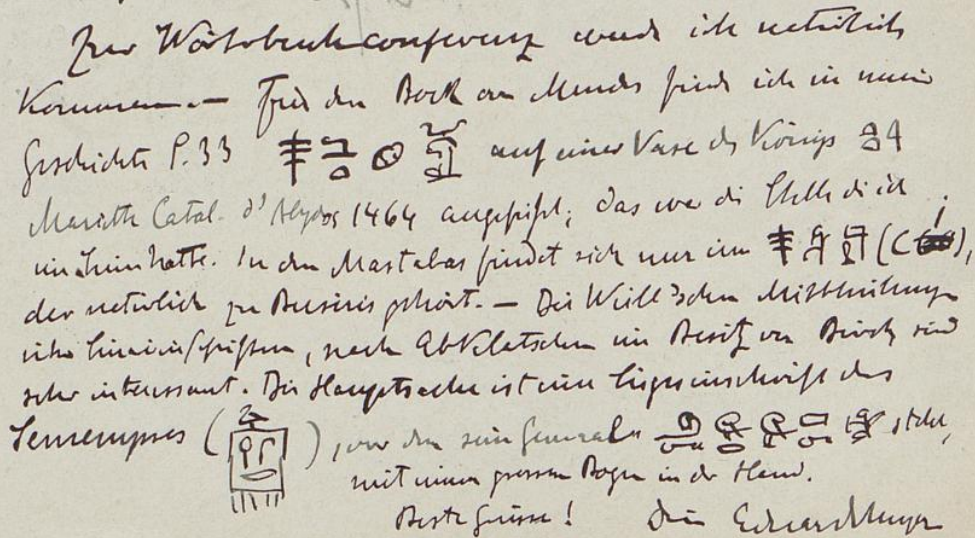 Zur Wörterbuchconferenz werde ich natürlich
kommen. — Für den Bock von Mendes finde ich in meiner
Geschichte S. 33 auf einer Vase des Königs
Mariette Catal. d'Abydos 1464 angeführt; das war die Stelle die ich
im Sinn hatte. In den Mastabas findet sich nur ein
der natürlich zu Busiris gehört. — Die Weill'schen Mittheilungen
über Sinaiinschriften, nach Abklatschen im Besitz von Birch sind
sehr interessant. Die Hauptsache ist eine Siegesinschrift des
Semempses ( ), vor dem sein General steht,
mit einem grossen Bogen in der Hand.
Beste Grüsse! Dein Eduard Meyer